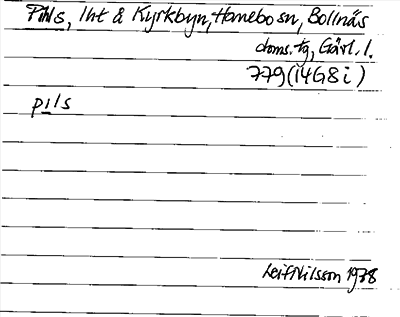 Pils, lht å Kyrkbyn, Hanebo sn, Bollnäs
doms.tg, Gävl. l.
779 (14G8i)
pils
Leif Nilsson 1978